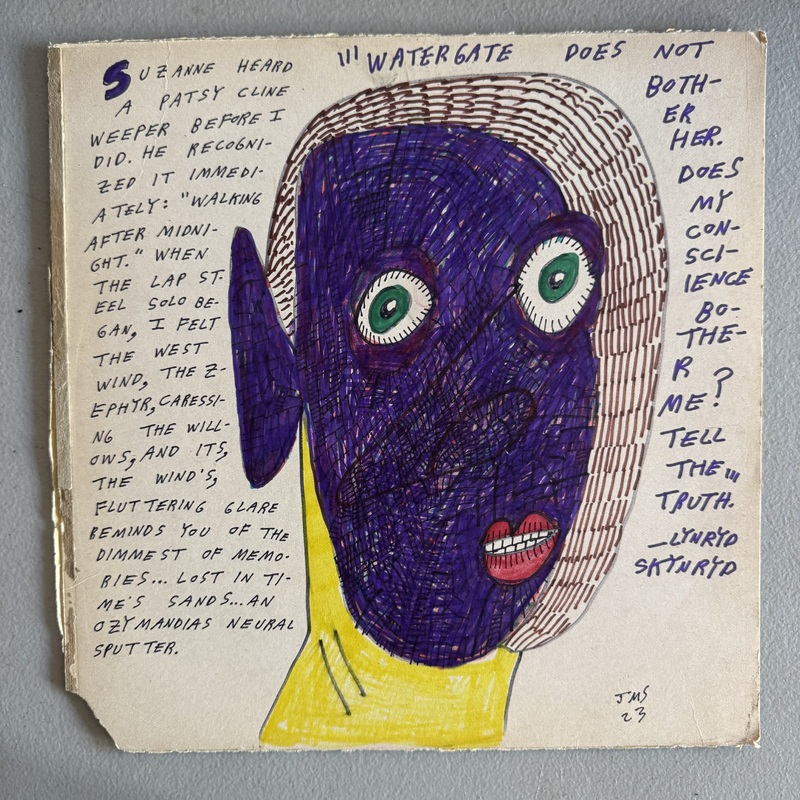 SUZANNE HEARD
A PATSY CLINE
WEEPER BEFORE I
DID. HE RECOGNI-
ZED IT IMMEDI-
ATELY: "WALKING
AFTER MIDNI-
GHT." WHEN
THE LAP ST-
EEL SOLO BE-
GAN, I FELT
THE WEST
WIND, THE Z-
EPHYR, CARESSI-
NG THE WILL-
OWS, AND ITS,
THE WIND'S,
FLUTTERING GLARE
REMINDS YOU OF THE
DIMMEST OF MEMO-
RIES... LOST IN TI-
ME'S SANDS... AN
OZYMANDIAS NEURAL
SPUTTER.
"'WATERGATE DOES NOT
BOTH-
ER
HER.
DOES
MY
CON-
SCI-
IENCE
BO-
THE-
R
ME?
TELL
THE...
TRUTH.
—LYNRYD
SKYNRYD
JMS
23